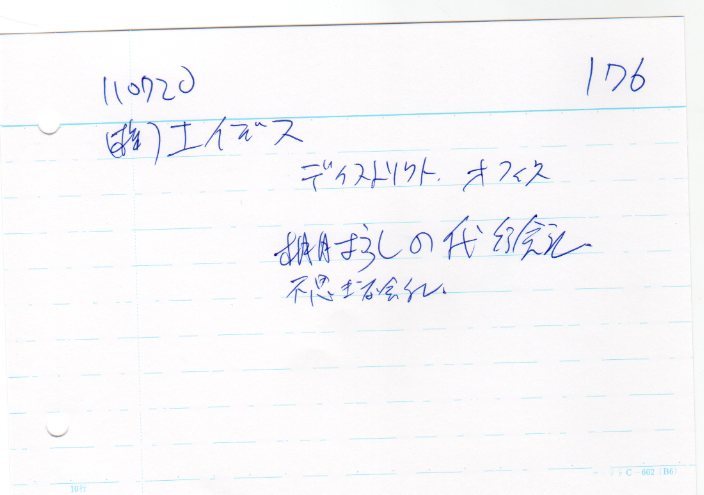 110720 176
(株)エイデス
ディストリクト.オフィス
棚おろしの代行会社
不思ギな会社.
10行
C-602 (B6)